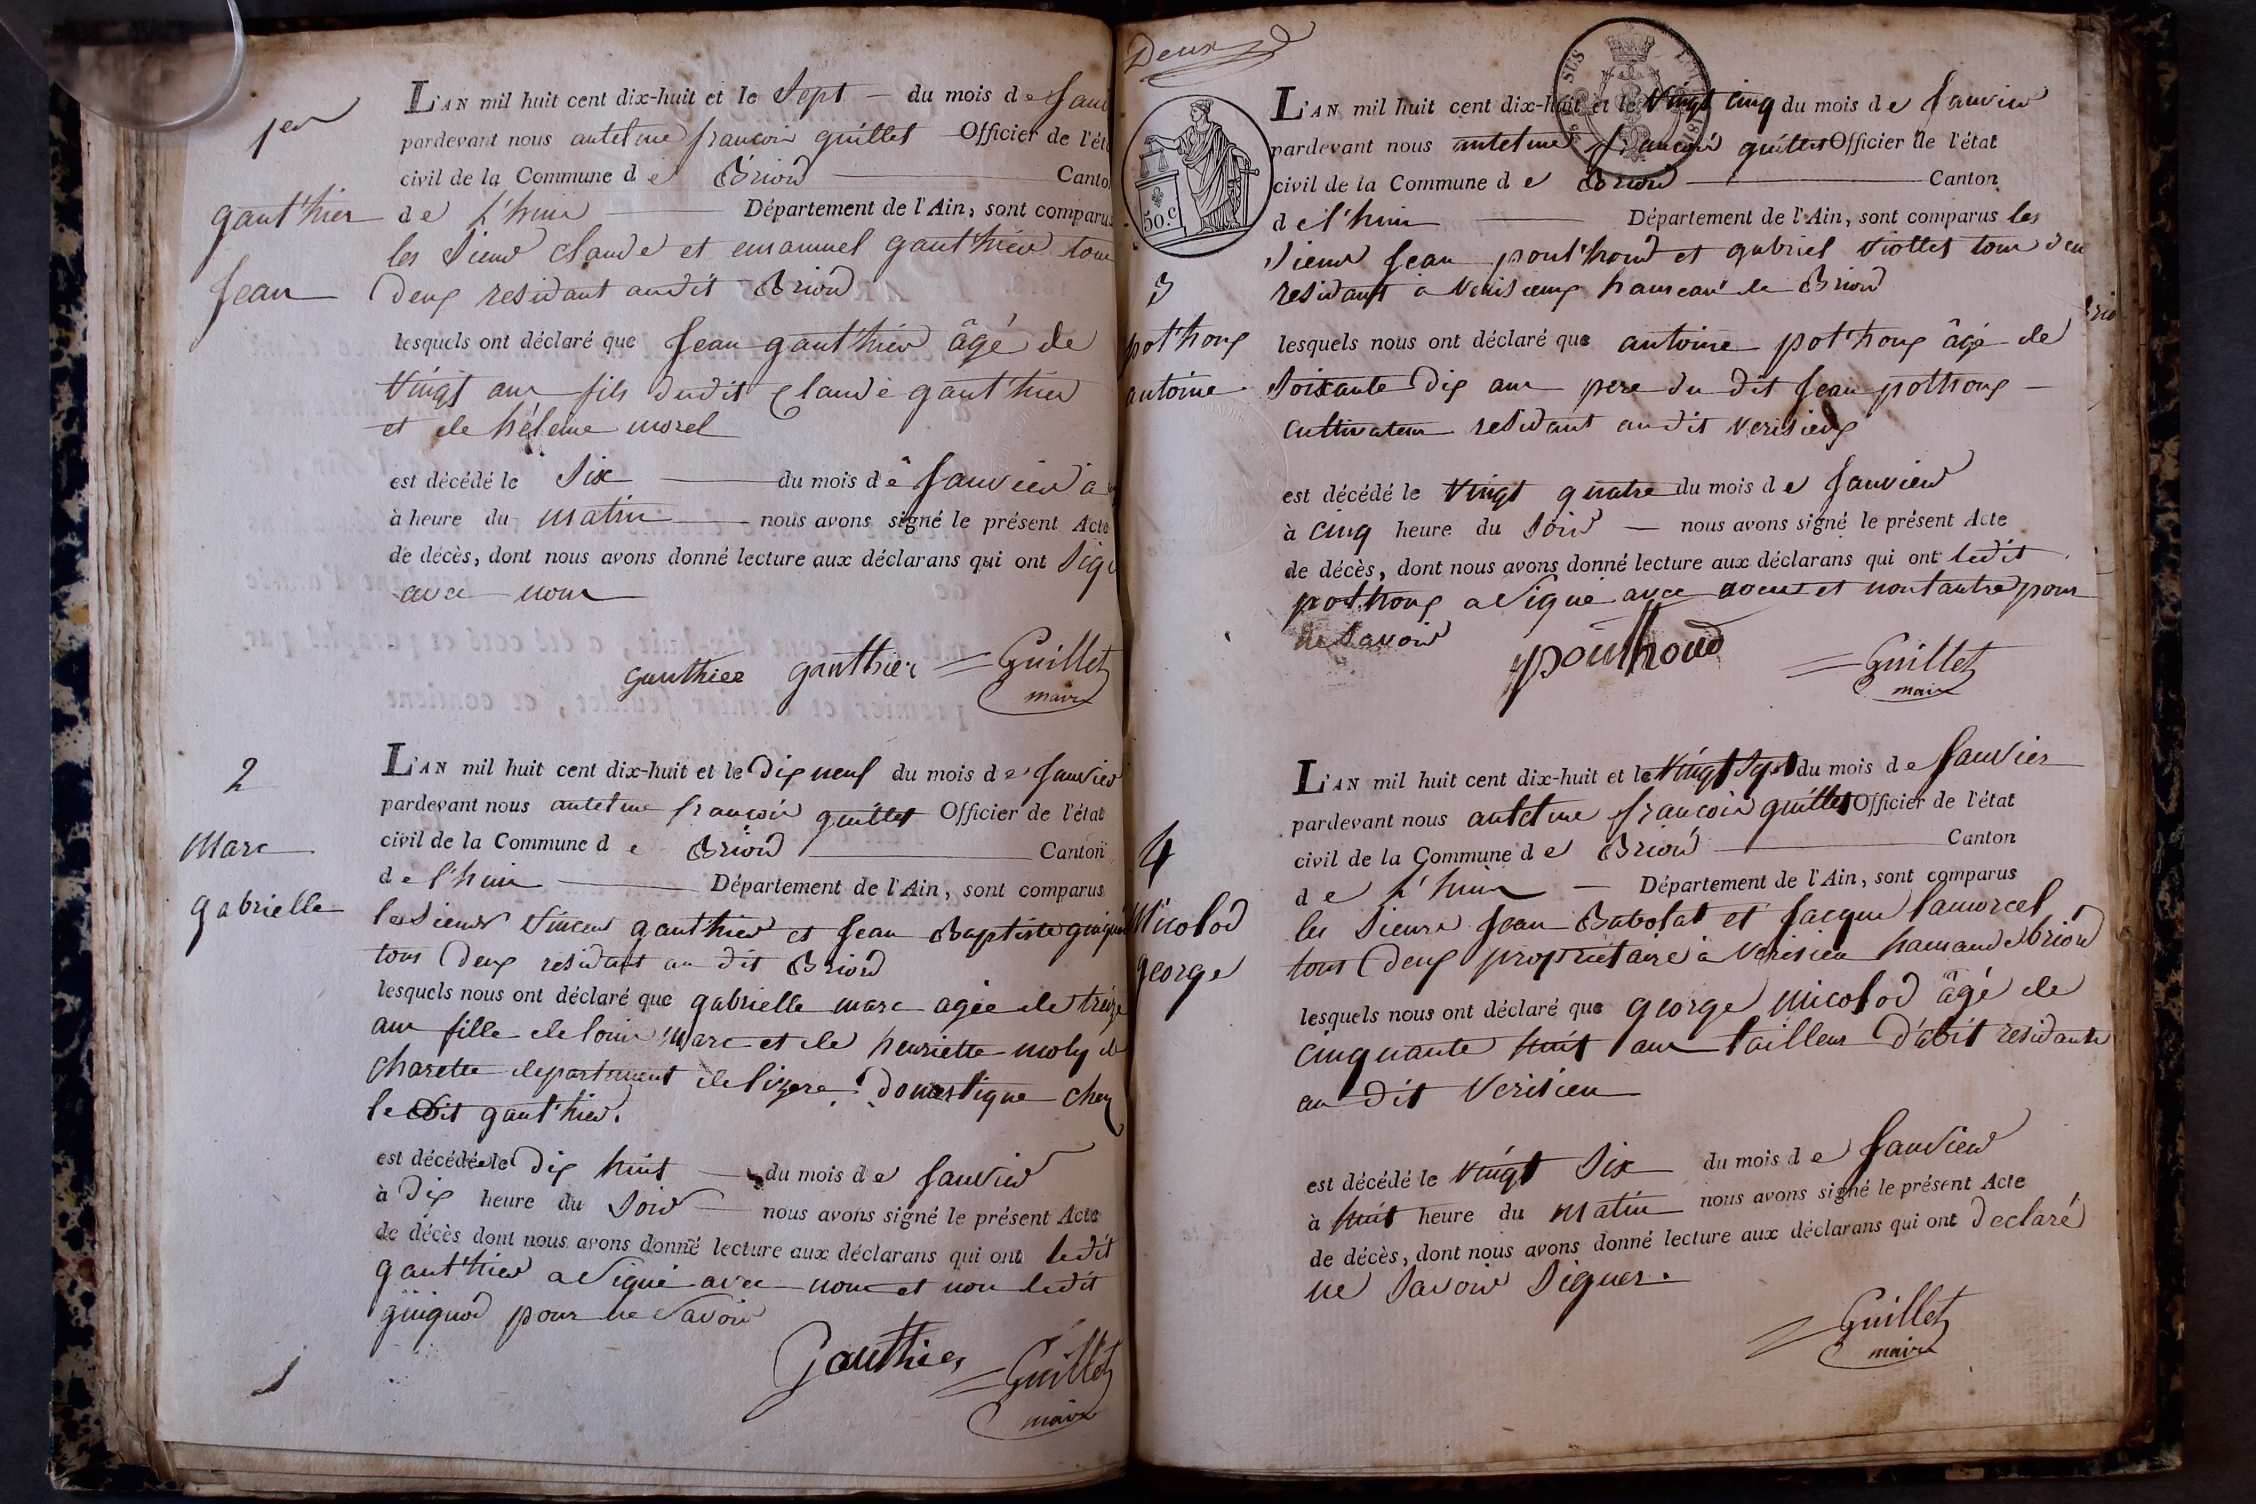 1er
gauthier
Jean
L'AN mil huit cent dix-huit et le Sept du mois de Janv
pardevant nous antelme francois guillet Officier de l'ét
civil de la Commune de Briord Canto
de L'huis Département de l'Ain, sont comparus
les Sieurs Claude et emanuel gauthier tous
deux residant audit Briord
lesquels ont déclaré que Jean gauthier âgé de
Vingt ans fils dudit Claude gauthier
et de hélène morel
est décédé le Six du mois de Janvier à
à heure du matin nous avons signé le présent Acte
de décès, dont nous avons donné lecture aux déclarans qui ont Sign
avec nous
gauthier gauthier Guillet
maire
2
Marc
gabrielle
L'AN mil huit cent dix-huit et le Dix neuf du mois de Janvier
pardevant nous antelme francois guillet Officier de l'état
civil de la Commune de Briord Canton
de l'huis Département de l'Ain, sont comparus
les Sieurs Vincent gauthier et Jean Baptiste
tous Deux residant au dit Briord
lesquels nous ont déclaré que gabrielle marc agée de treize
ans fille de louis Marc et de henriette moly de
charette departement de lizere domestique chez
le dit gauthier.
est décédée le dix huit du mois de Janvier
à Dix heure du Soir nous avons signé le présent Acte
de décès dont nous avons donné lecture aux déclarans qui ont ledit
gauthier a Signé avec nous et non ledit
guignod pour ne Savoir
Gauthier Guillet
maire
Deux
SUS
50.c
3
pothoux
antoine
L'AN mil huit cent dix-huit et le Vingt cinq du mois de Janvier
pardevant nous antelme francois guillet Officier de l'état
civil de la Commune de Briord Canton
de l'huis Département de l'Ain, sont comparus les
Sieurs Jean pouthoud et gabriel Viollet tous deu
residant a Verisieux hameau de Briord
lesquels nous ont déclaré que antoine pothoux âgé de
Soixante Dix ans pere du dit Jean pothoux
cultivateur residant audit verisieux
est décédé le Vingt quatre du mois de Janvier
à cinq heure du Soir nous avons signé le présent Acte
de décès, dont nous avons donné lecture aux déclarans qui ont ledit
pothoux a Signé avec nous et non lautre pour
ne Savoir
pouthoud Guillet
maire
4
Micolod
george
L'AN mil huit cent dix-huit et le Vingt Sept du mois de Janvier
pardevant nous antelme francois guillet Officier de l'état
civil de la Commune de Briord Canton
de L'huis Département de l'Ain, sont comparus
les Sieurs Jean Babolat et Jacque lamorcel
tous Deux proprietaire à Verisieu briord
lesquels nous ont déclaré que george micolod âgé de
cinquante huit ans tailleur D'abit residante
au dit Verisieu
est décédé le Vingt Six du mois de Janvier
à huit heure du Matin nous avons signé le présent Acte
de décès, dont nous avons donné lecture aux déclarans qui ont Declaré
ne Savoir Signer.
Guillet
maire